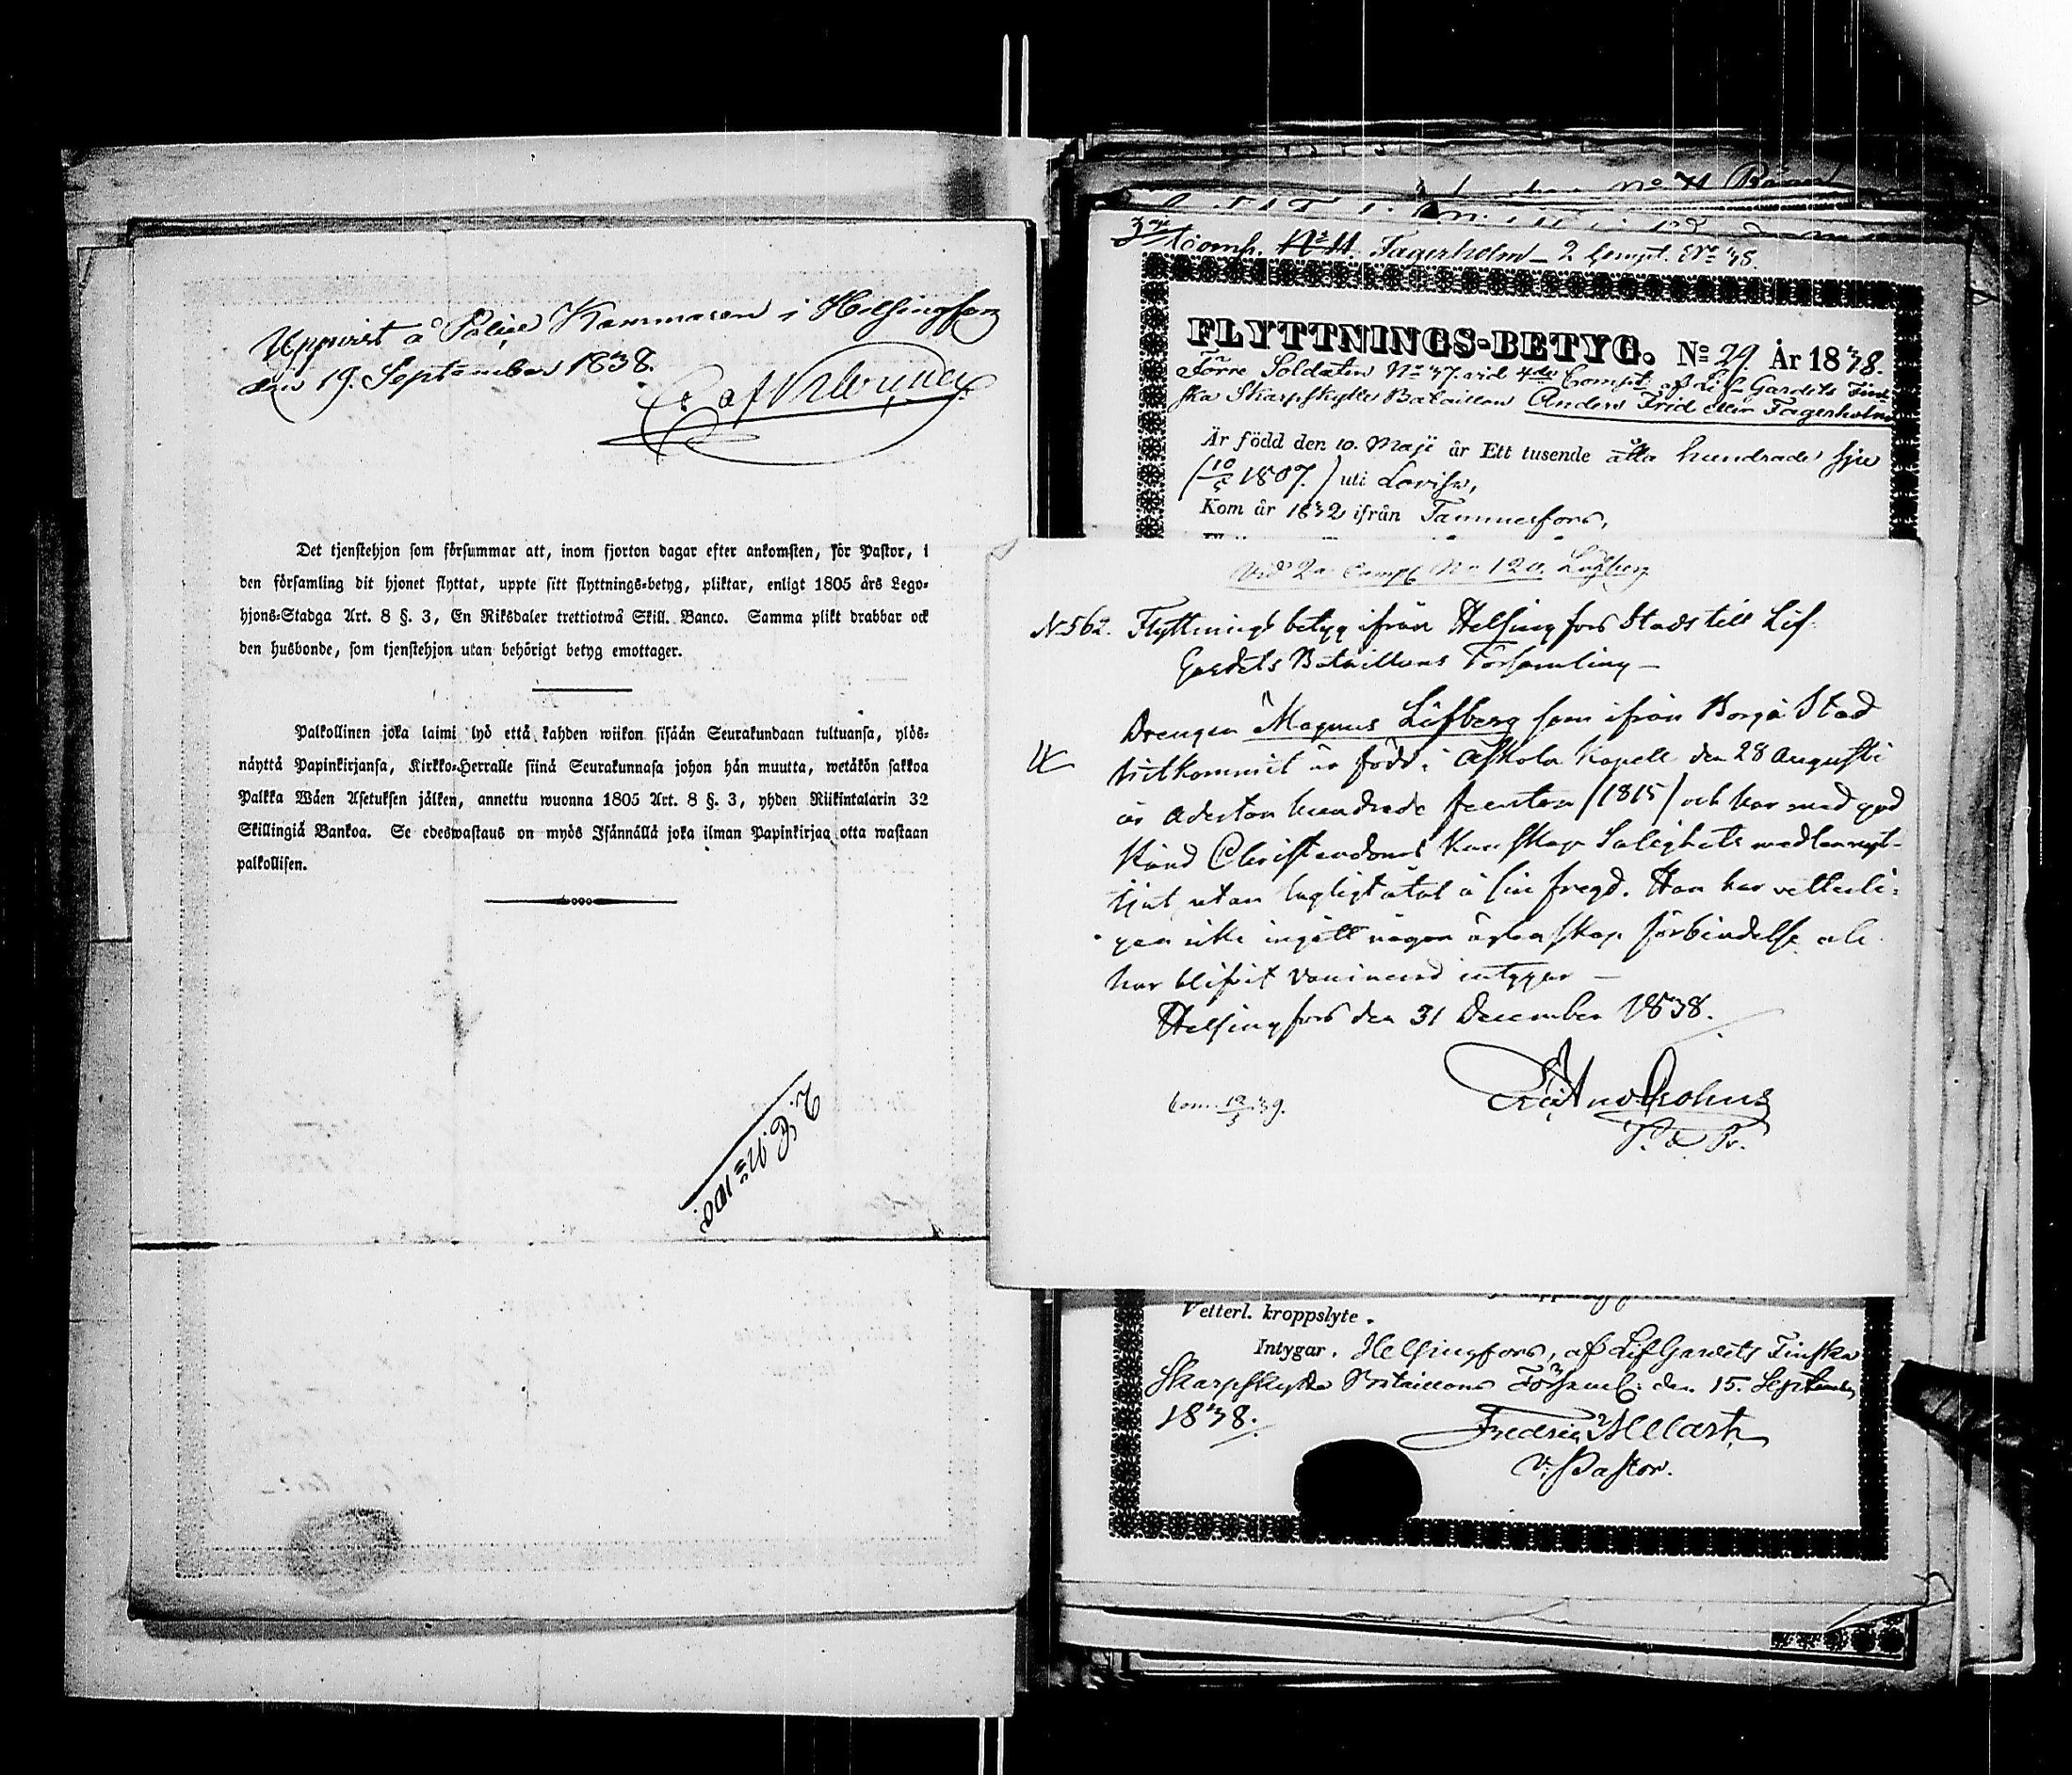 Uppvist å Police Kammaren i Helsingfors
den 19. September 1838.
Det tjenstehjon som försummar att, inom fjorton dagar efter ankomsten, för Pastor, i
den församling dit hjonet flyttat, uppte sitt flyttnings-betyg, pliktar, enligt 1805 års Lego-
hjons-Stadga Art. 8 §. 3, En Riksdaler trettiotwå Skill. Banco. Samma plikt drabbar ock
den husbonde, som tjenstehjon utan behörigt betyg emottager.
Palkollinen joka laimi lyö että kahden wiikon sisään Seurakundaan tultuansa, ylös-
näyttä Papinkirjansa, Kirkko-Herralle siinä Seurakunnasa johon hän muutta, wetäkön sakkoa
Palkka Wäen Asetuksen jälken, annettu wuonna 1805 Art. 8 §. 3, yhden Riikintalarin 32
Skillingiä Bankoa. Se edeswastaus on myös Isännällä joka ilman Papinkirjaa otta wastaan
palkollisen.
No 100.
3dje Comp. No 11. Fagerholm – 2 Compt. No 48.
FLYTTNINGS-BETYG. No 29. År 1838.
Förre Soldaten No 47. vid 4de Compt. af Lif-Gardets Fin-
ska Skarpskytte Bataillon Anders Frid eller Fagerholm
Är född den 10. Maji år Ett tusende åtta hundrade sju
(10/5 1807.) uti Lovisa,
Kom år 1832 ifrån Tammerfors,
Vid 2a Comp. No 120. Löfberg
No 562. Flyttnings betyg ifrån Helsingfors Stads till Lif-
Gardets Bataillons Församling –
Drengen Magnus Löfberg som ifrån Borgå Stad
hitkommit är född i Askola Kapell den 28 Augusti
år Adertonhundrade femton (1815) och har med god
stånd Christendoms kunskap Salighets medlen nytt-
jat utan lagligt åtal å sin fregd. Han har vetterli-
gen icke ingått någon äktenskaps förbindelse och
har blifvit vaccinerad intygar –
Helsingfors den 31 December 1838.
Kom. 12/5 39.
Vetterl. kroppslyte.
Intygar. Helsingfors, af LifGardets Finska
Skarpskytte Bataillons Församl: den 15. September
1838.
Fredric Mellarth
V. Pastor.